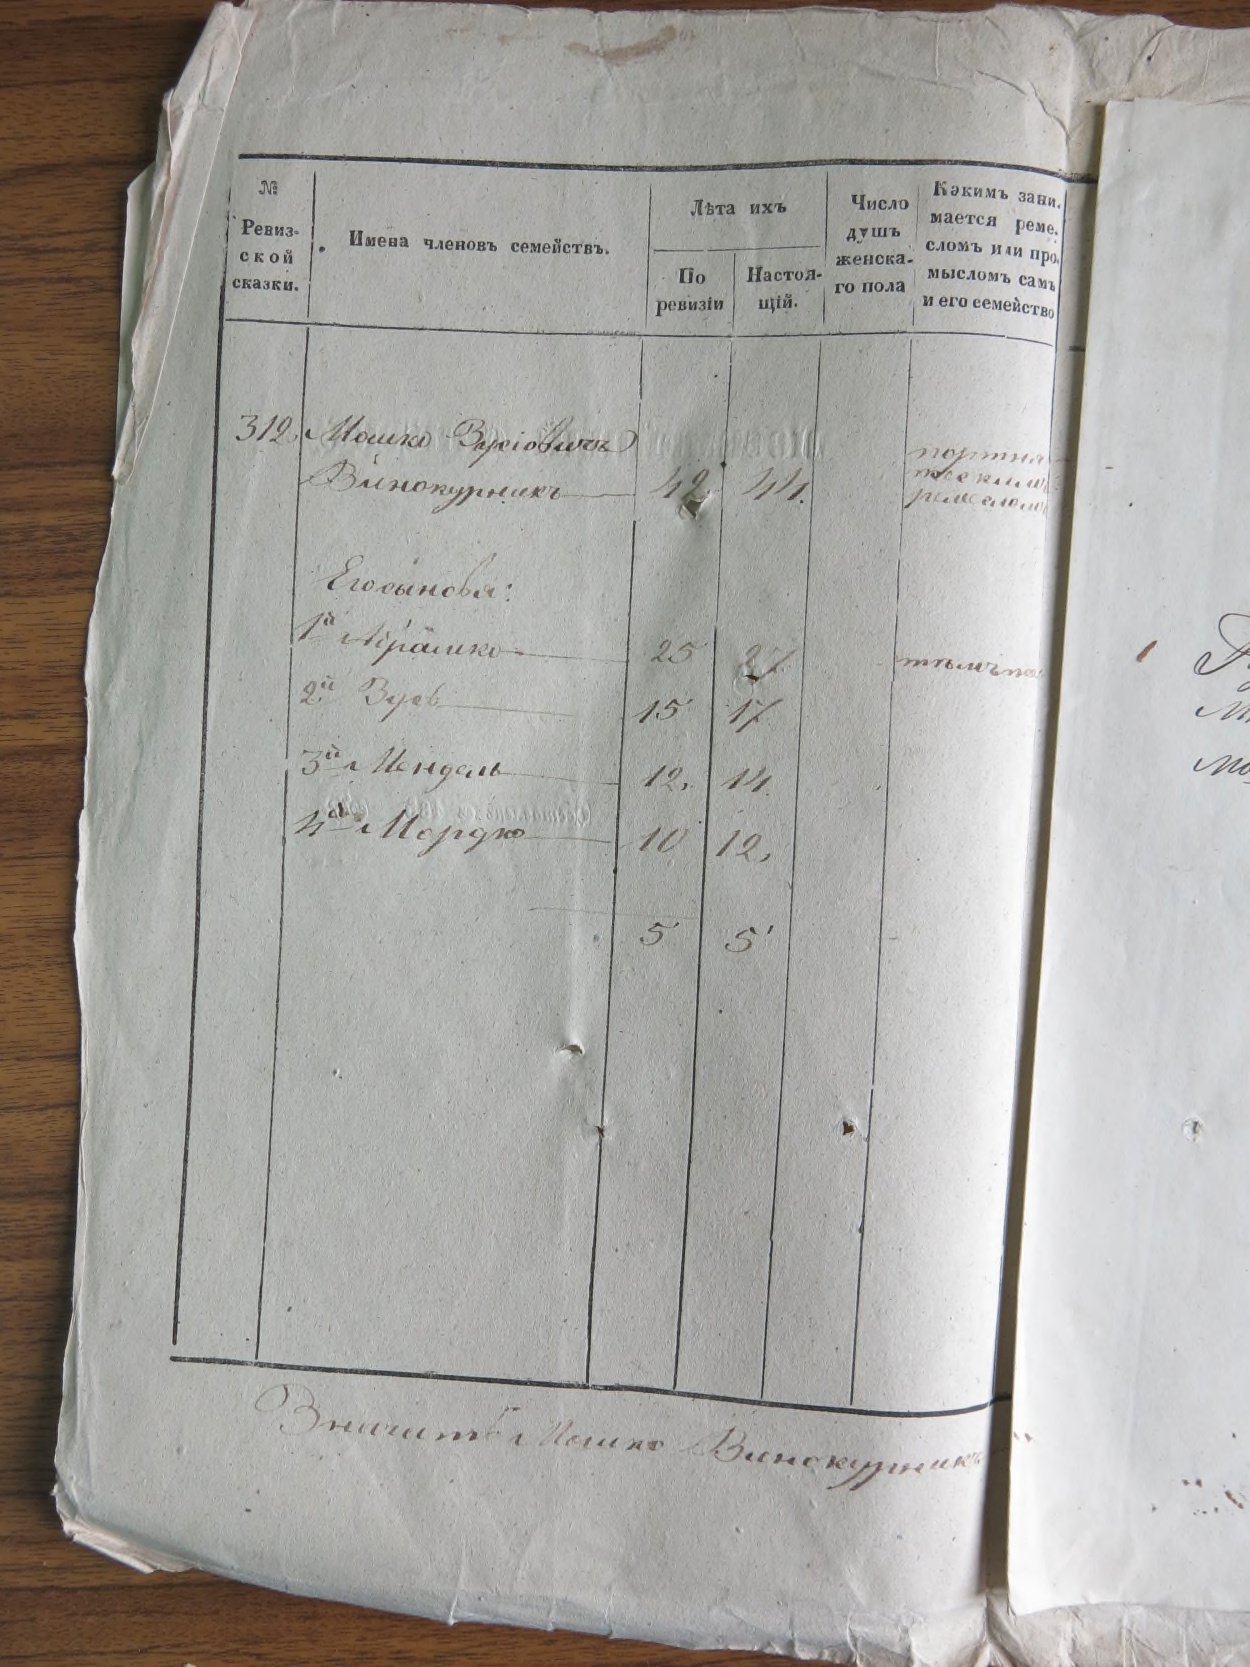 № Ревиз-ской сказки.
Имена членовъ семействъ.
Лѣта ихъ
По ревизіи
Настоя-щій.
Число душъ женска-го пола
Какимъ зани-
мается реме-
сломъ или про-
мысломъ самъ
и его семейство
312. Мошко Зусіовичъ
Винокурникъ 42 44.
портня-
жескимъ
ремесломъ
Его сыновья:
1й Абрамко 25 27 тѣмъ же
2й Зусь 15 17
3й Мендель 12. 14.
4й Мордко 10 12.
5 5
Значитъ Мошко Винокурникъ